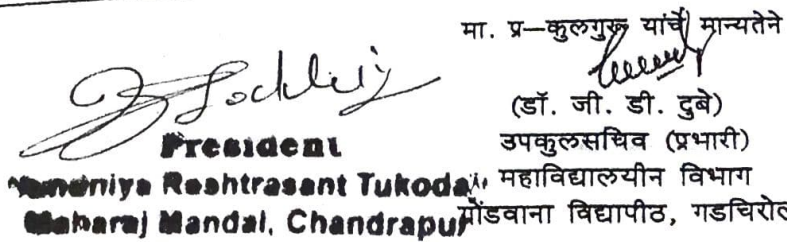 मा. प्र–कुलगुरू यांचे मान्यतेने
(डॉ. जी. डी. दुबे)
उपकुलसचिव (प्रभारी)
महाविद्यालयीन विभाग
गोंडवाना विद्यापीठ, गडचिरोल
President
Rashtrasant Tukodaji
Maharaj Mandal, Chandrapur